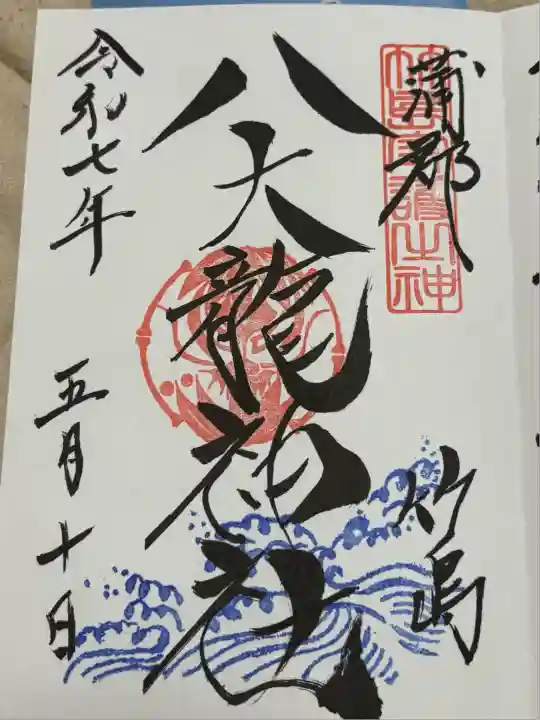 蒲郡
竹島
八大龍神社
令和七年
五月十日